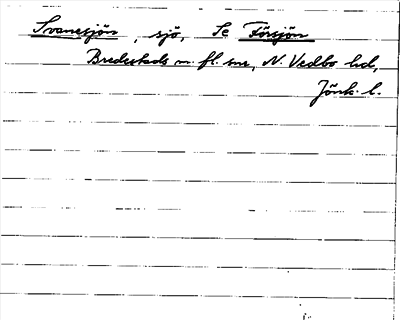 Svanesjön, sjö, Se Försjön
Bredestads m. fl. snr, N. Vedbo hd,
Jönk. l.